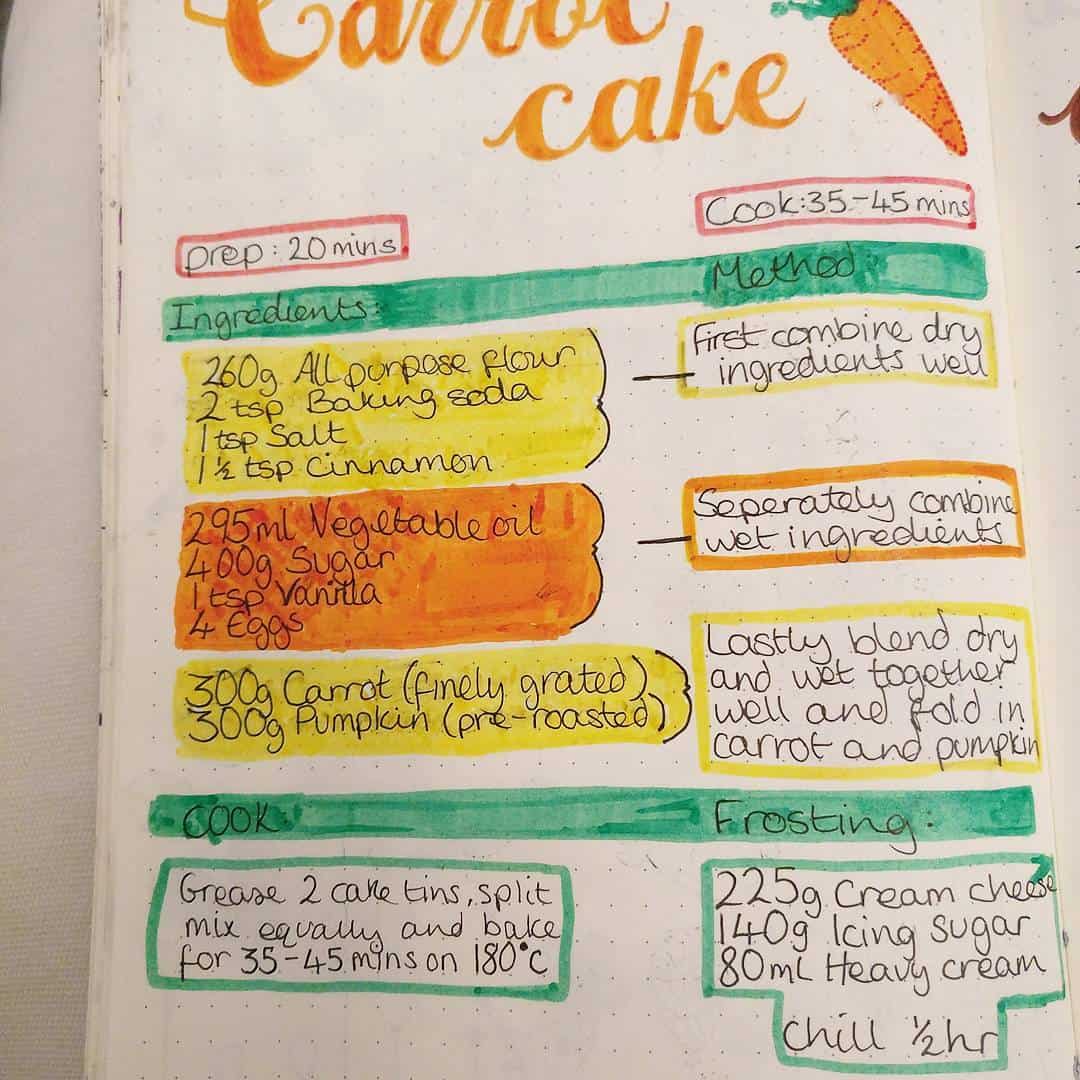 Carrot
cake
prep: 20 mins
Cook: 35-45 mins
Ingredients:
260g All purpose flour
2 tsp Baking soda
1 tsp Salt
1 ½ tsp Cinnamon
295ml Vegetable oil
400g Sugar
1 tsp Vanilla
4 Eggs
300g Carrot (finely grated)
300g Pumpkin (pre-roasted)
Method:
First combine dry
ingredients well
Seperately combine
wet ingredients
Lastly blend dry
and wet together
well and fold in
carrot and pumpkin
COOK:
Grease 2 cake tins, split
mix equally and bake
for 35-45 mins on 180°C
Frosting:
225g Cream cheese
140g Icing sugar
80mL Heavy cream
Chill ½hr